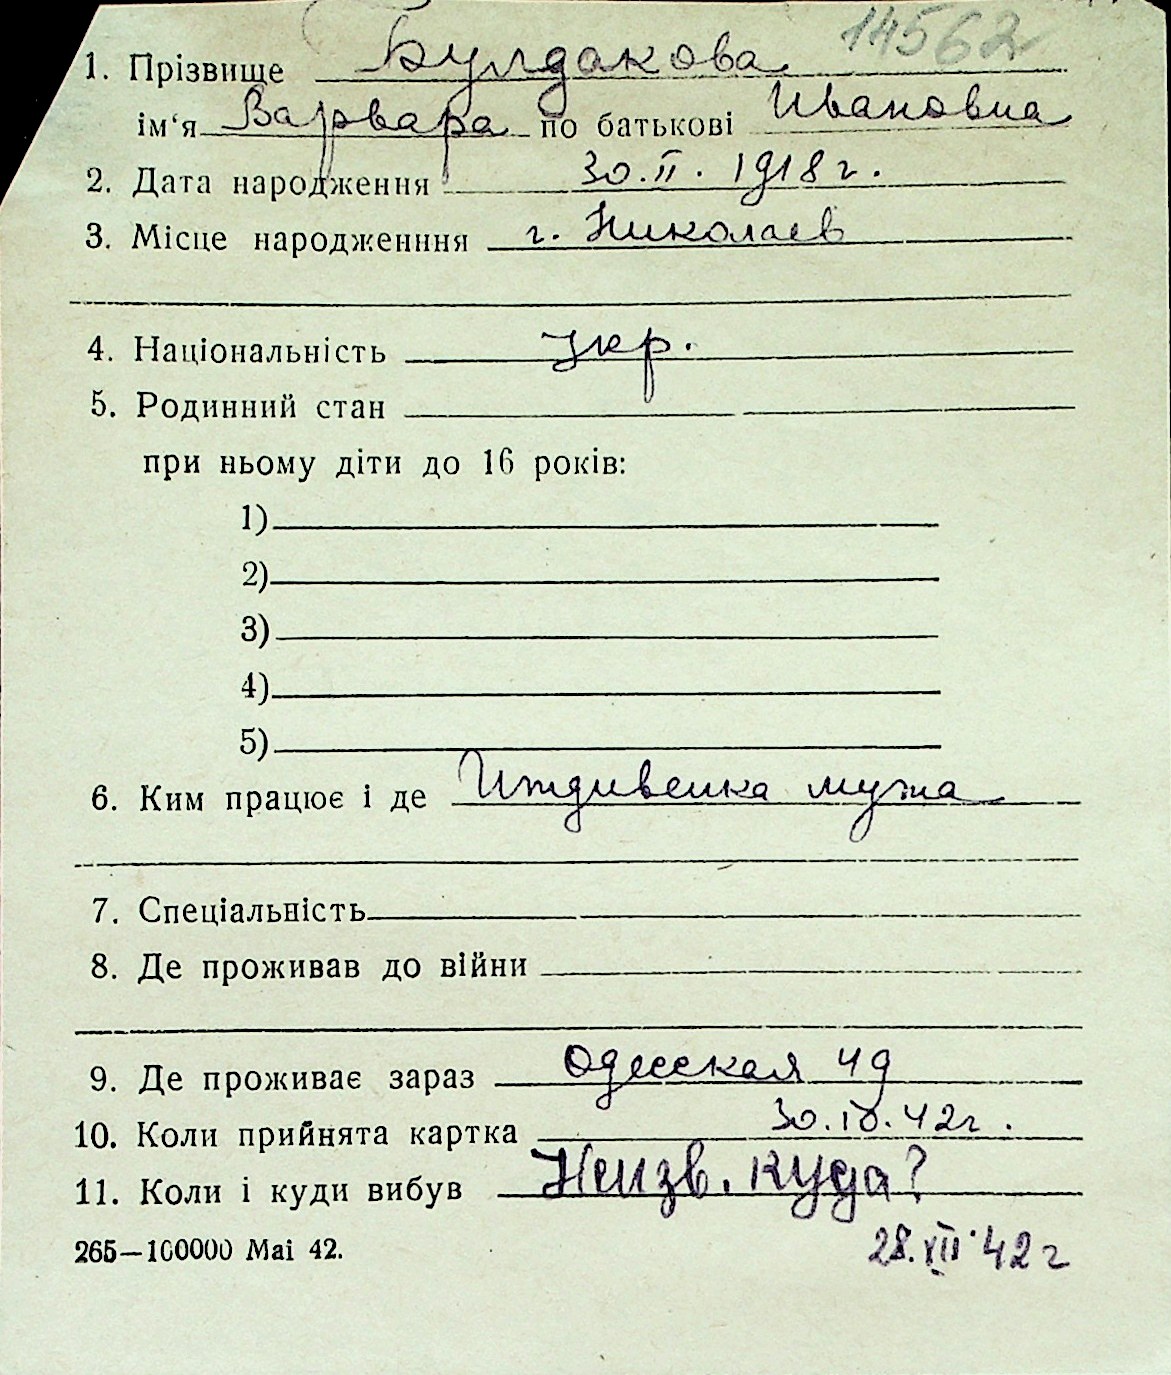 14562
1. Прізвище Булдакова
ім‘я Варвара по батькові Ивановна
2. Дата народження 30.II. 1918 г.
3. Місце народженння г. Николаев
4. Національність Укр.
5. Родинний стан
при ньому діти до 16 років:
1)
2)
3)
4)
5)
6. Ким працює і де Иждивенка мужа
7. Спеціальність
8. Де проживав до війни
9. Де проживає зараз Одесская 49
10. Коли прийнята картка 30.IV.42г.
11. Коли і куди вибув Неизв. куда?
265—100000 Mai 42. 28.XII.42 г